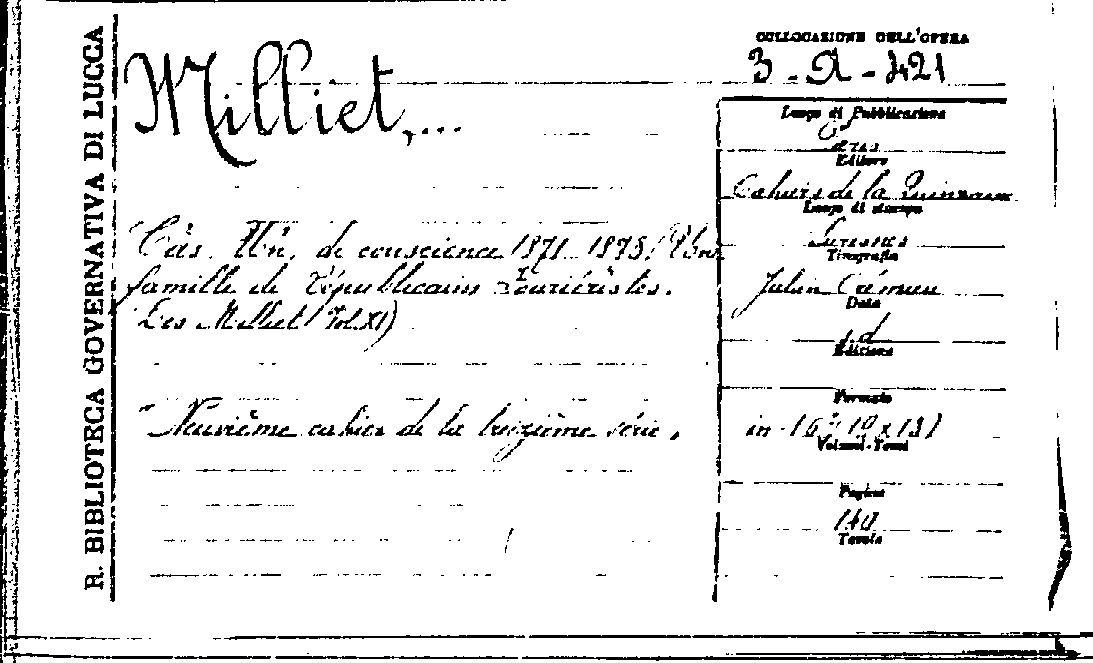 R. BIBLIOTECA GOVERNATIVA DI LUCCA
COLLOCAZIONE DELL'OPERA
3 - A - 421
Milliet,...
de conscience 1871-1875/Une
famille de républicains Fouriéristes.
Les Milliet/Vol.XI)
Neuvième cahier de la série.
Luogo di Pubblicazione
Editore
Cahiers de la Quinzaine
Luogo di stampa
Suresnes
Tipografia
Julien Crémieu
Data
s.d.
Edizione
Formato
in-16°
Volumi-Tomi
Pagine
Tavole